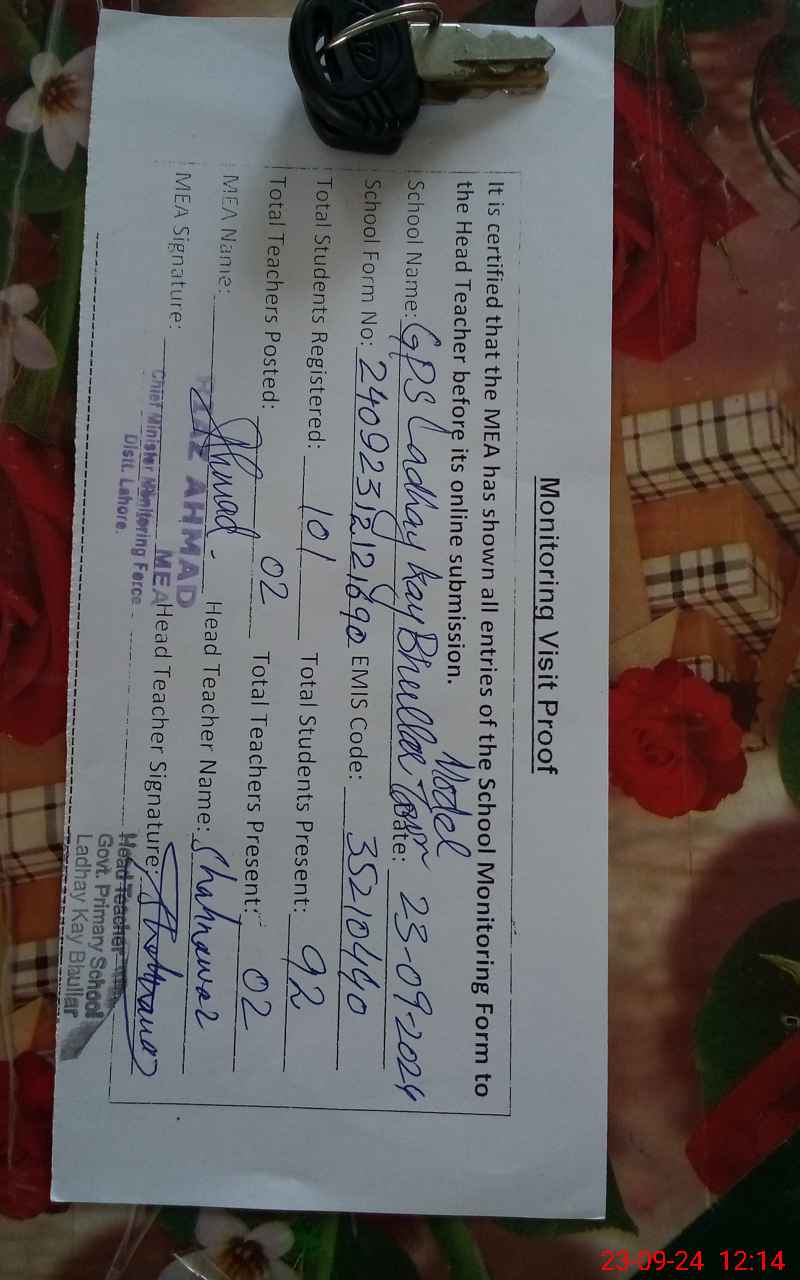 Monitoring Visit Proof
It is certified that the MEA has shown all entries of the School Monitoring Form to
the Head Teacher before its online submission.
Model
School Name: GPS Ladhay Kay Bhullar Town Date: 23-09-2024
School Form No: 24092312121690 EMIS Code: 35210440
Total Students Registered: 101 Total Students Present: 92
Total Teachers Posted: 02 Total Teachers Present: 02
MEA Name: Ahmad Head Teacher Name: Shahnawaz
AHMAD
MEA Signature: MEA Head Teacher Signature: Shahnawaz
Chief Minister Monitoring Force
Distt. Lahore.
Head Teacher
Govt. Primary School
Ladhay Kay Bhullar
23-09-24 12:14